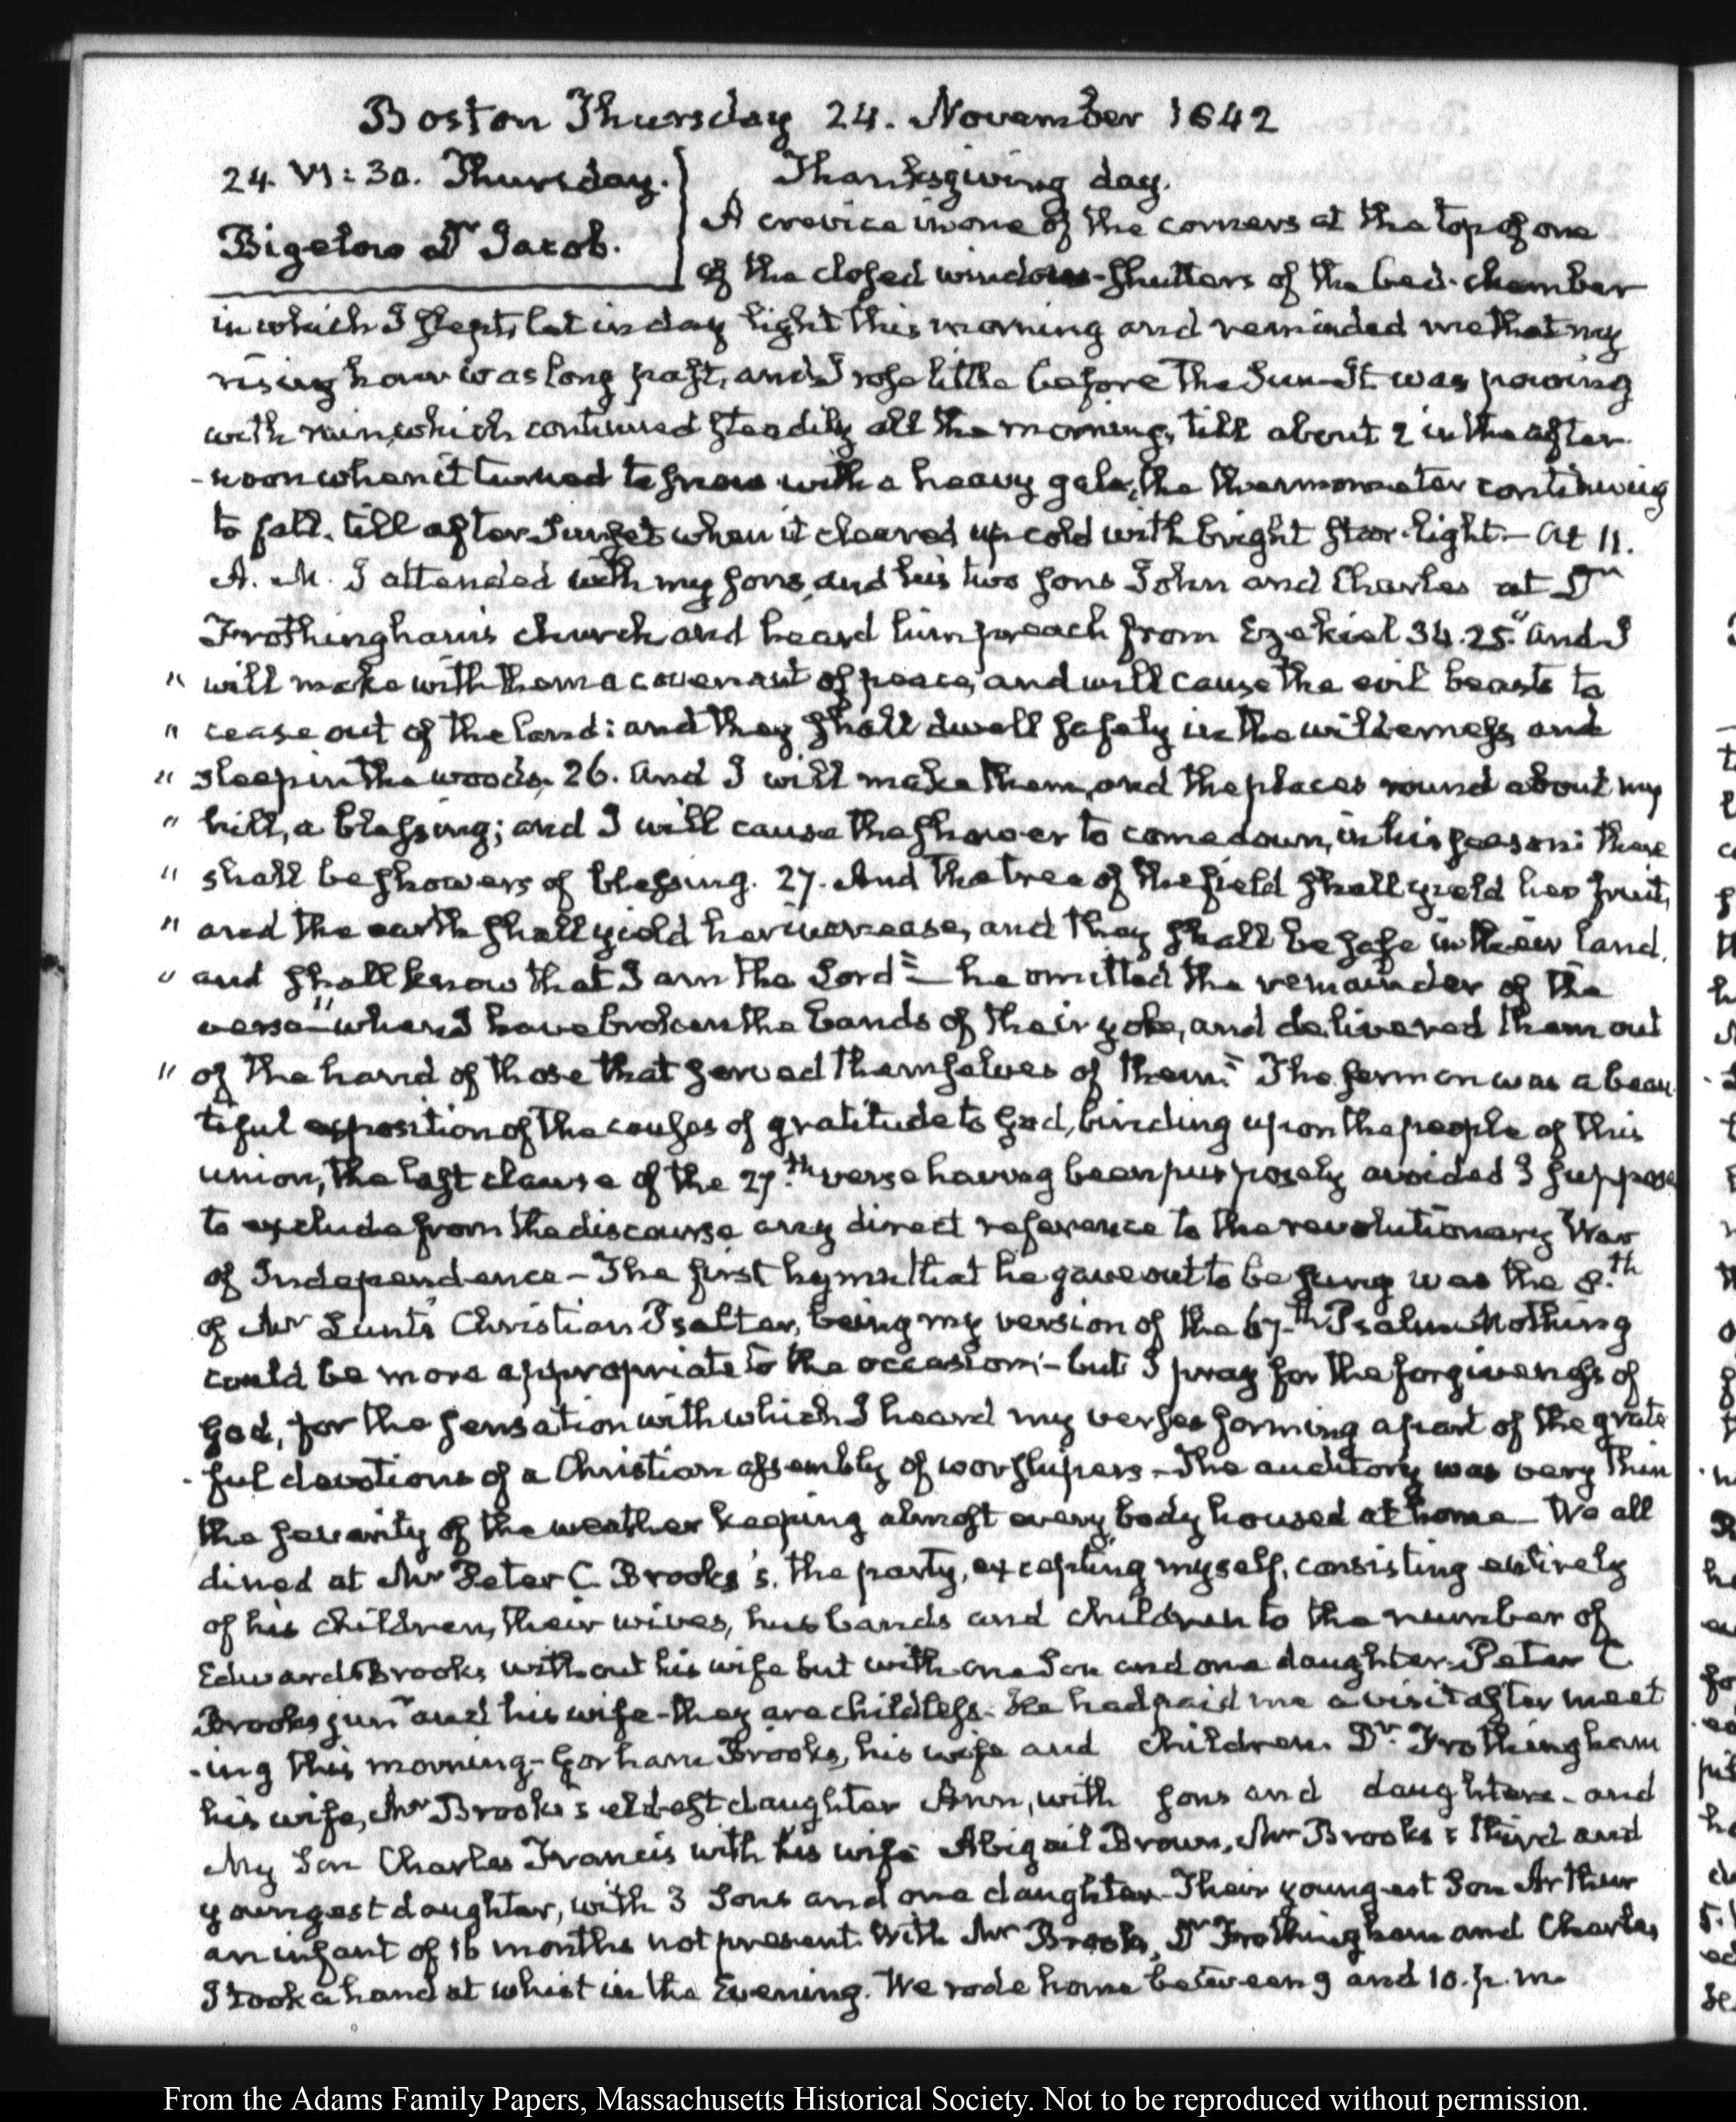 Boston Thursday 24. November 1842
24. VI: 30. Thursday.
Bigelow Dr Jacob.
Thanksgiving day.
A crevice in one of the corners at the top of one
of the closed window-shutters of the bed-chamber
in which I slept, let in day light this morning and reminded me that my
rising hour was long past, and I rose little before the Sun—It was pouring
with rain, which continued steadily all the morning, till about 2 in the after
-noon when it turned to snow with a heavy gale, the thermometer continuing
to fall, till after Sunset when it cleared up cold with bright star-light—At 11.
A. M. I attended with my son, and his two sons John and Charles at Dr
Frothingham's church and heard him preach from Ezekiel 34.25. "And I
" will make with them a covenant of peace, and will cause the evil beasts to
" cease out of the land: and they shall dwell safely in the wilderness, and
" sleep in the woods. 26. And I will make them, and the places round about my
" hill, a blessing; and I will cause the shower to come down, in his season: there
" shall be showers of blessing. 27. And the tree of the field shall yield her fruit,
" and the earth shall yield her increase, and they shall be safe in their land,
" and shall know that I am the Lord"—he omitted the remainder of the
verse—"when I have broken the bands of their yoke, and delivered them out
" of the hand of those that served themselves of them." The sermon was a beau
tiful exposition of the causes of gratitude to God, binding upon the people of this
union, the last clause of the 27.th verse having been purposely avoided I suppose
to exclude from the discourse any direct reference to the revolutionary War
of Independence—The first hymn that he gave out to be sung was the 8.th
of Mr Lunt's Christian Psalter, being my version of the 67.th Psalm Nothing
could be more appropriate to the occasion;—but I pray for the forgiveness of
God, for the sensation with which I heard my verses forming a part of the grate
-ful devotions of a Christian assembly of worshipers—The auditory was very thin
the severity of the weather keeping almost every body housed at home—We all
dined at Mr Peter C. Brooks's, the party, excepting myself, consisting entirely
of his children, their wives, husbands and children to the number of
Edward Brooks without his wife but with one Son and one daughter—Peter C.
Brooks junr and his wife—they are childless. He had paid me a visit after meet
-ing this morning—Gorham Brooks, his wife and children. Dr. Frothingham
his wife, Mr Brooks's eldest daughter Ann, with sons and daughters—and
My Son Charles Francis with his wife Abigail Brown, Mr Brooks's third and
youngest daughter, with 3 Sons and one daughter—Their youngest Son Arthur
an infant of 16 months not present. With Mr Brooks, Dr Frothingham and Charles
I took a hand at whist in the Evening. We rode home between 9 and 10. p. m.
From the Adams Family Papers, Massachusetts Historical Society. Not to be reproduced without permission.